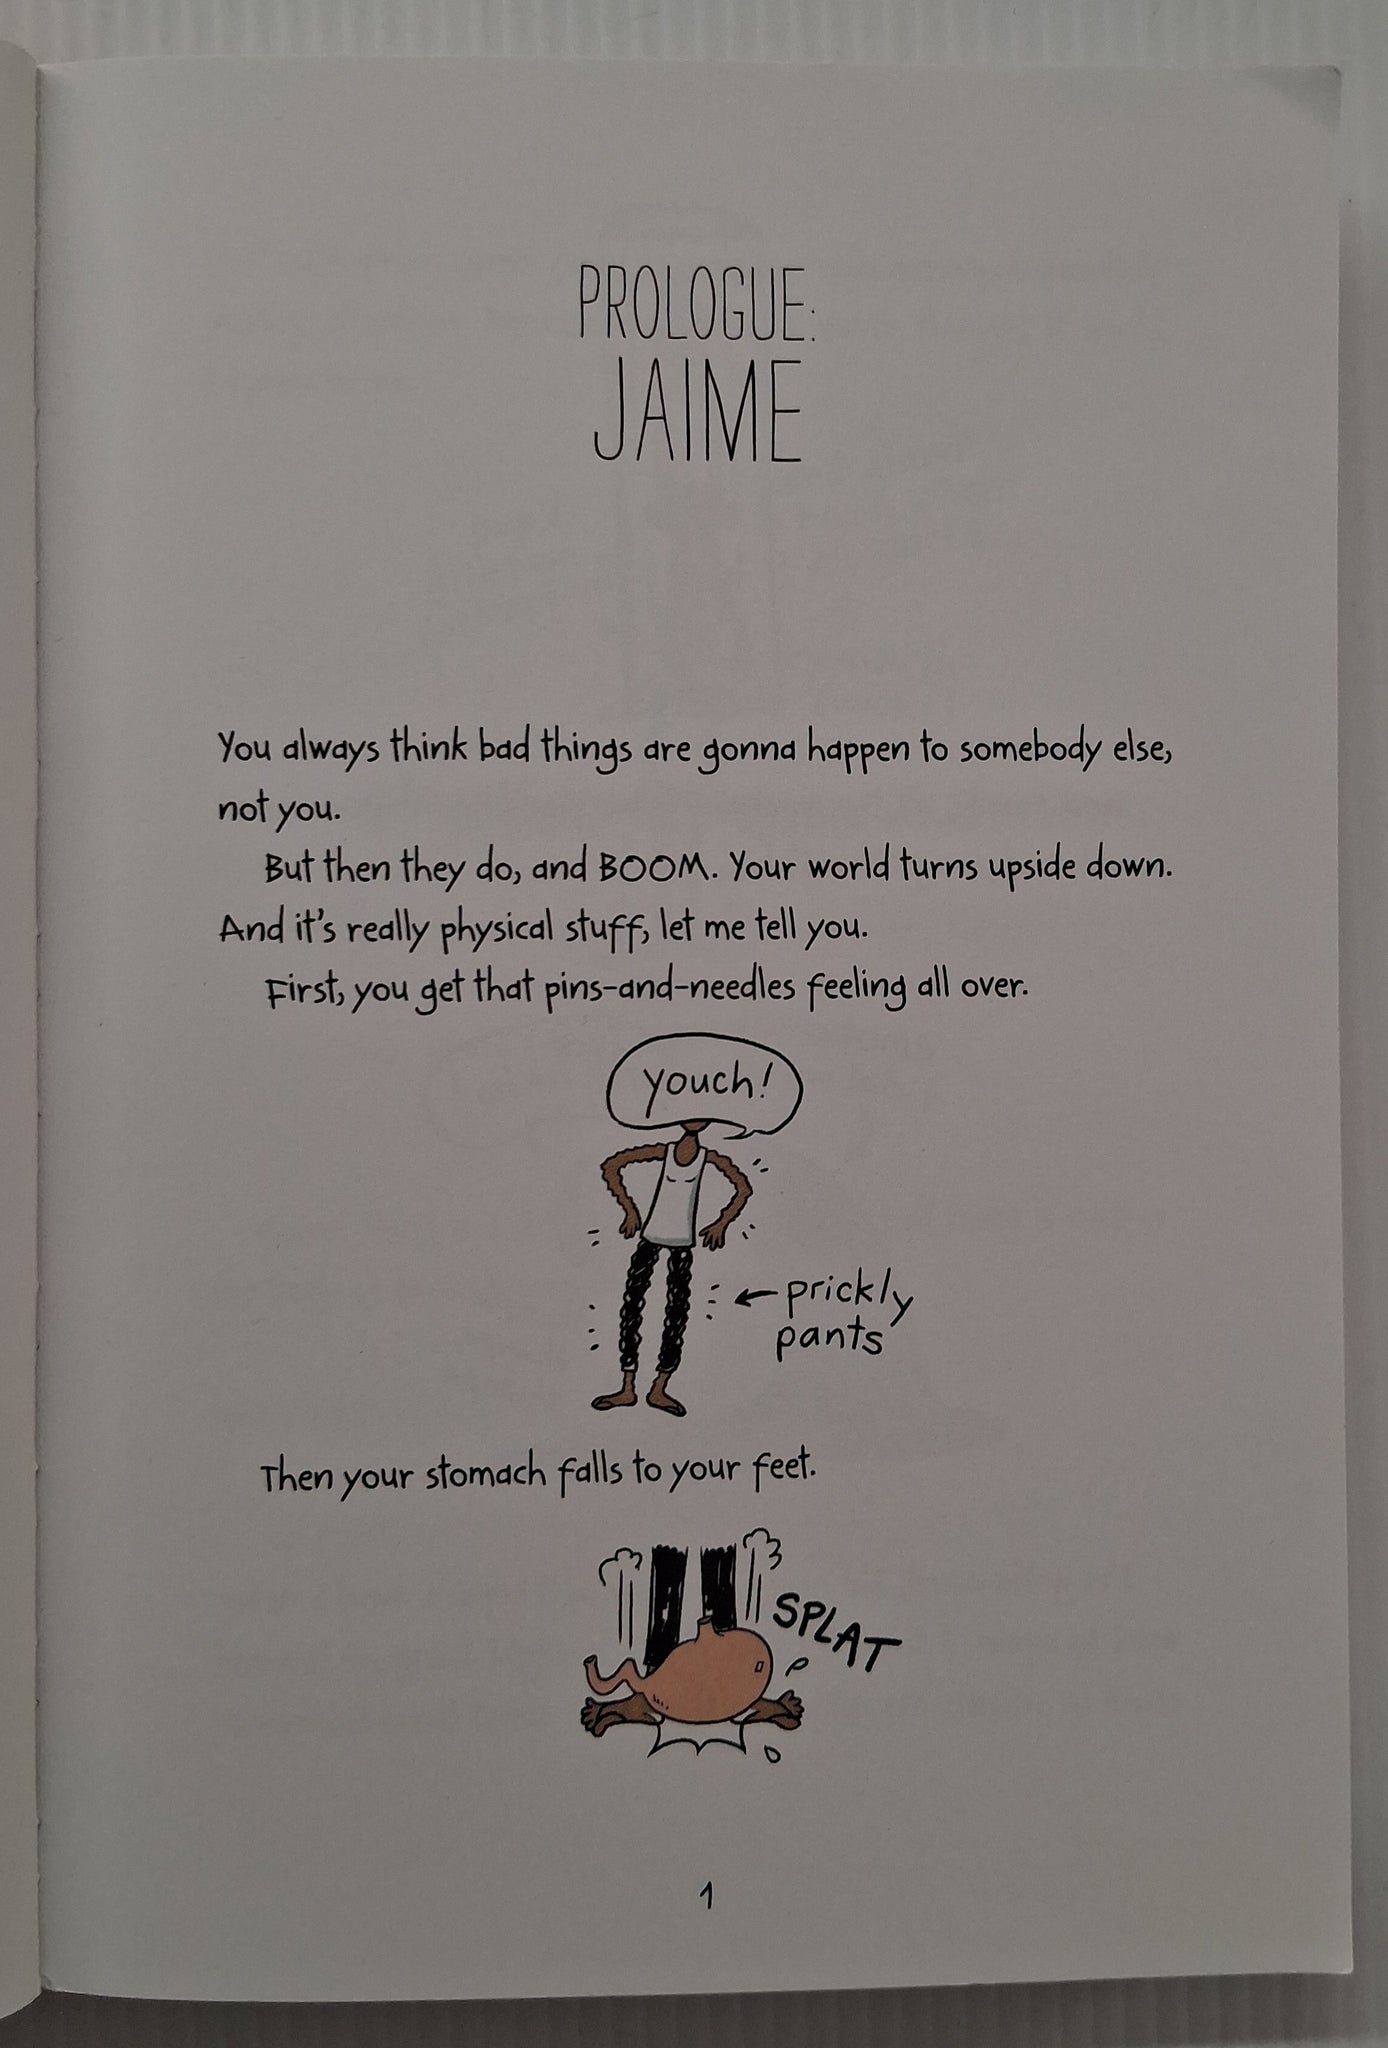 PROLOGUE:
JAIME
You always think bad things are gonna happen to somebody else,
not you.
But then they do, and BOOM. Your world turns upside down.
And it's really physical stuff, let me tell you.
First, you get that pins-and-needles feeling all over.
youch!
prickly
pants
Then your stomach falls to your feet.
SPLAT
1